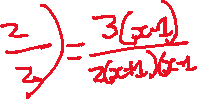 2/2) = 3(x-1)/2(x+1)(x-1